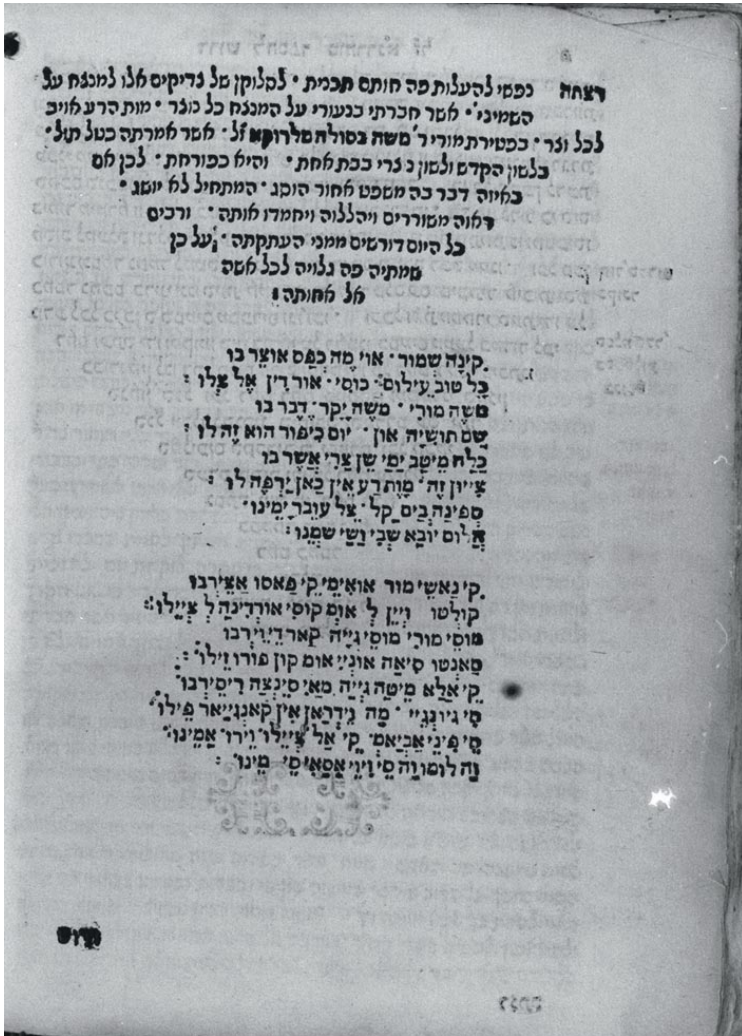 רצתה נפשי להעלות פה חותם תכנית · לחלוקן של צדיקים אלו למנצח על
השמיני · אשר חברתי בנעורי על המנצח כל נוצר · מות הרע אויב
לכל וצר · בפטירת מורי ר' משה בסולה מלרוקא ז״ל · אשר אמרתה בעל
בלשון הקדש ולשון נצרי בבת אחת · והיא כפורחת · לכן אם
באיזה דבר בה משפט אחור הוסג · המתחיל לא יושג ·
ראוה משוררים ויהללוה ויחמדו אותה · ורבים
כל היום דורשים ממני העתקתה · ועל כן
שמתיה פה גלויה לכל אשה
אל אחותה :
קִינָה שמור · אוי מֶה כְּפַס אוצֵר בו
כָּל טוֹב עֵילוֹם · כוסי · אור דִין אֶל צִלוֹ :
מֹשֶה מורִי · משֶה יָקָר · דֶבֶר בו
שָם תושִיָה און · יום כִיפור הוא זֶה לו :
כַּלָה מֵיטַב יָמַי שֶן צָרִי אֲשֶר בו
צִיוּן זֶה · מָוֶת רַע אֵין כַאן יַרְפֶה לו :
סְפִינָה בְיָם קַל · צֵל עובֵר יָמֵינוּ ·
הֲלום יוּבָא שְבִי וְשַי שמֵנו :
קִי נַאשֵי מור אואימֵי קֵי פַאסו אַצֵירְבו
קולטו וְיֵין לְ אום קוסִי אורְדִינַה לְ צְיֵילו :
מוסי מורי מוסי גִייַה קאר דֵי וֵירְבו
סַאנְטו סִיאַה אונְיִי אום קון פורו זֵילו :
קֵי אַלַא מֵיטַה גִייַה מַאי סֵינְצַה רִיסֵירְבו
סִי גְיוּנְגֵיי · מַה וֵידְרַאן אֵין קַאנְגְייַאר פֵילו :
סֵי פִינֵי אַבְיַאם קֵי אַל צְיֵילו וֵירו אַמֵינו :
וַה לומו וַה סֵי וִיוֵי אַסַאי סֵי מֵינו :